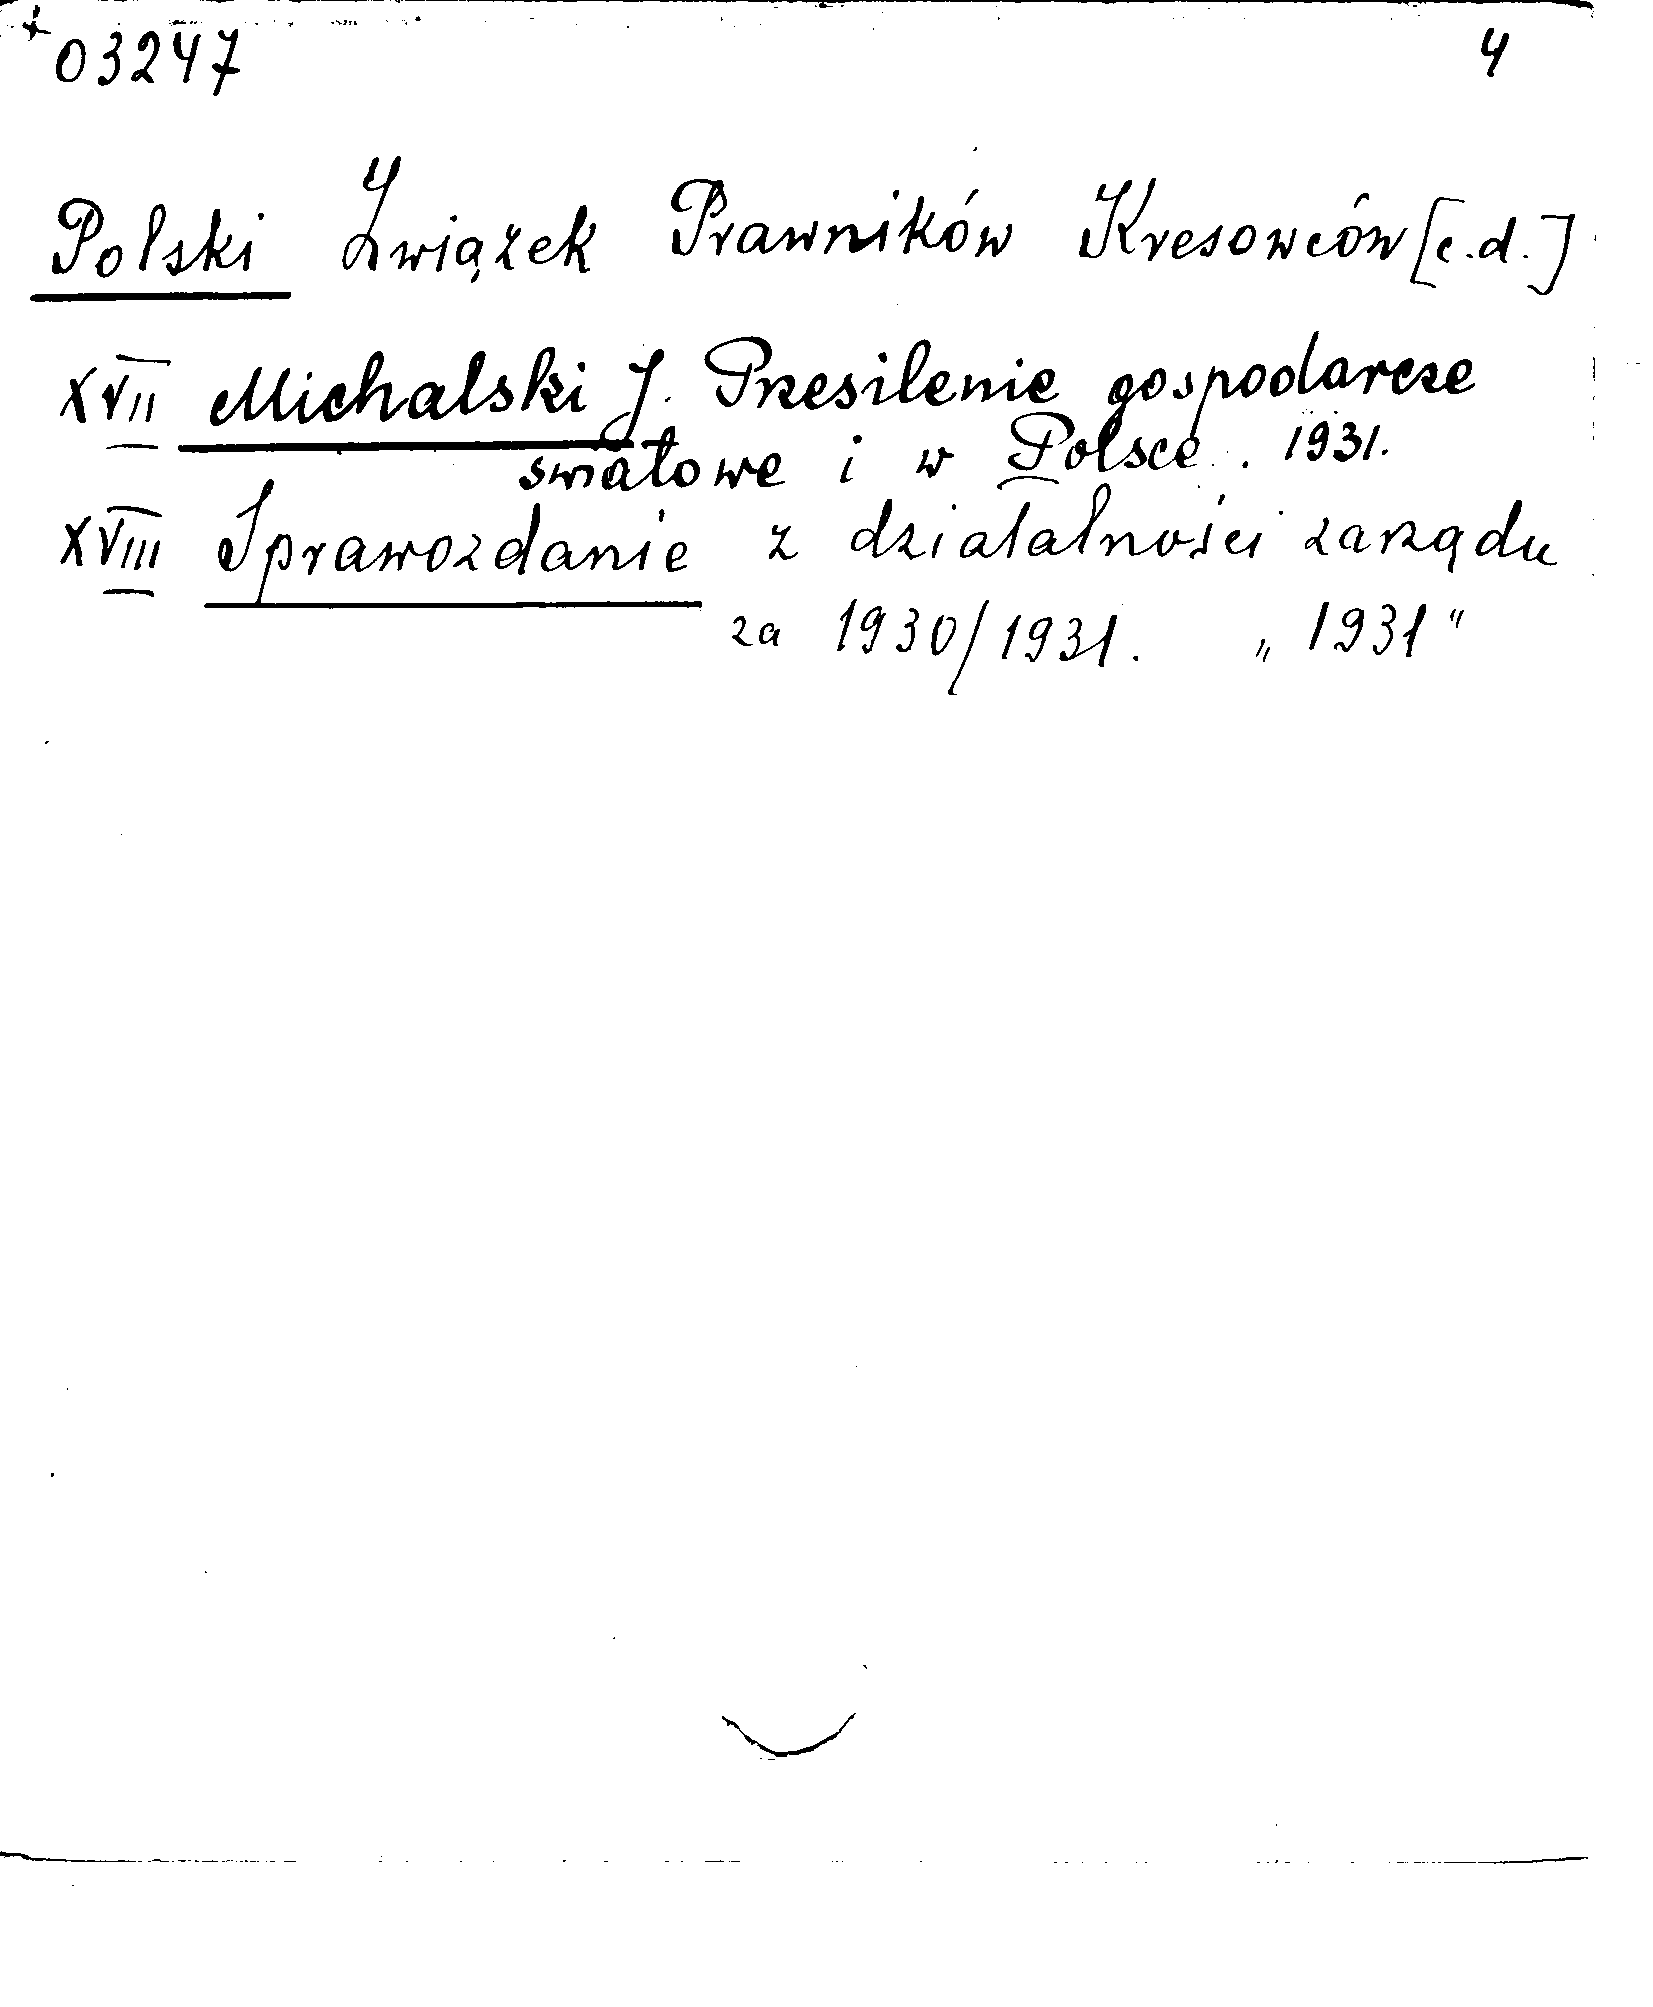 + 03247 4
Polski Związek Prawników Kresowców [c.d.]
XVII Michalski J. Przesilenie gospodarcze
światowe i w Polsce. 1931.
XVIII Sprawozdanie z działalności zarządu
za 1930/1931. „1931"